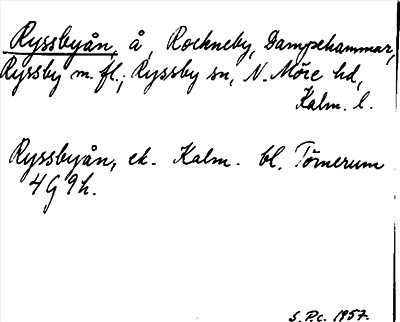 Ryssbyån, å, Rockneby, Dampehammar,
Ryssby m.fl.; Ryssby sn, N. Möre hd,
Kalm. l.
Ryssbyån, ek. Kalm. bl. Törnerum
4G 9h.
S.P.c. 1957.